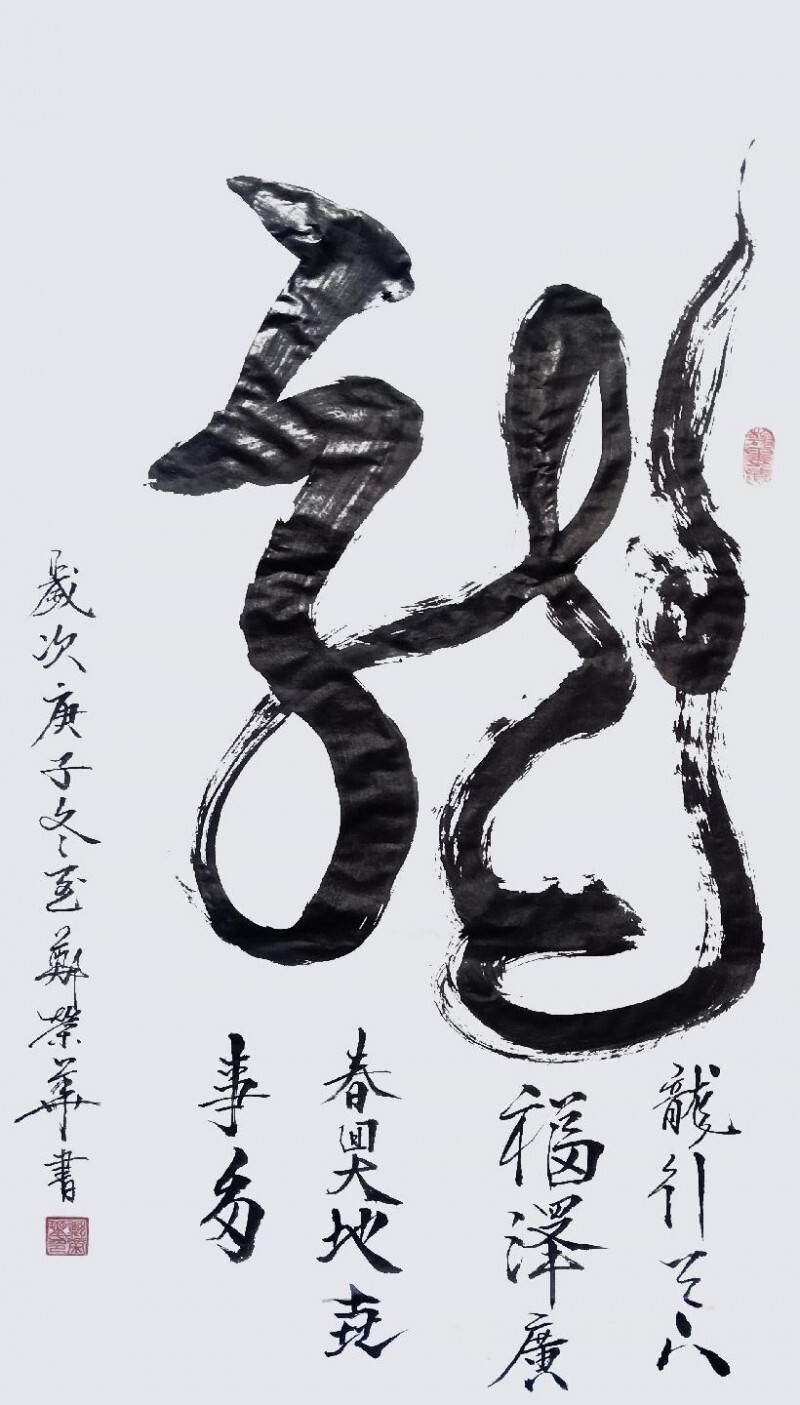 龍
龍行天下
福澤廣
春回大地喜
事多
歲次庚子冬至鄭榮華書